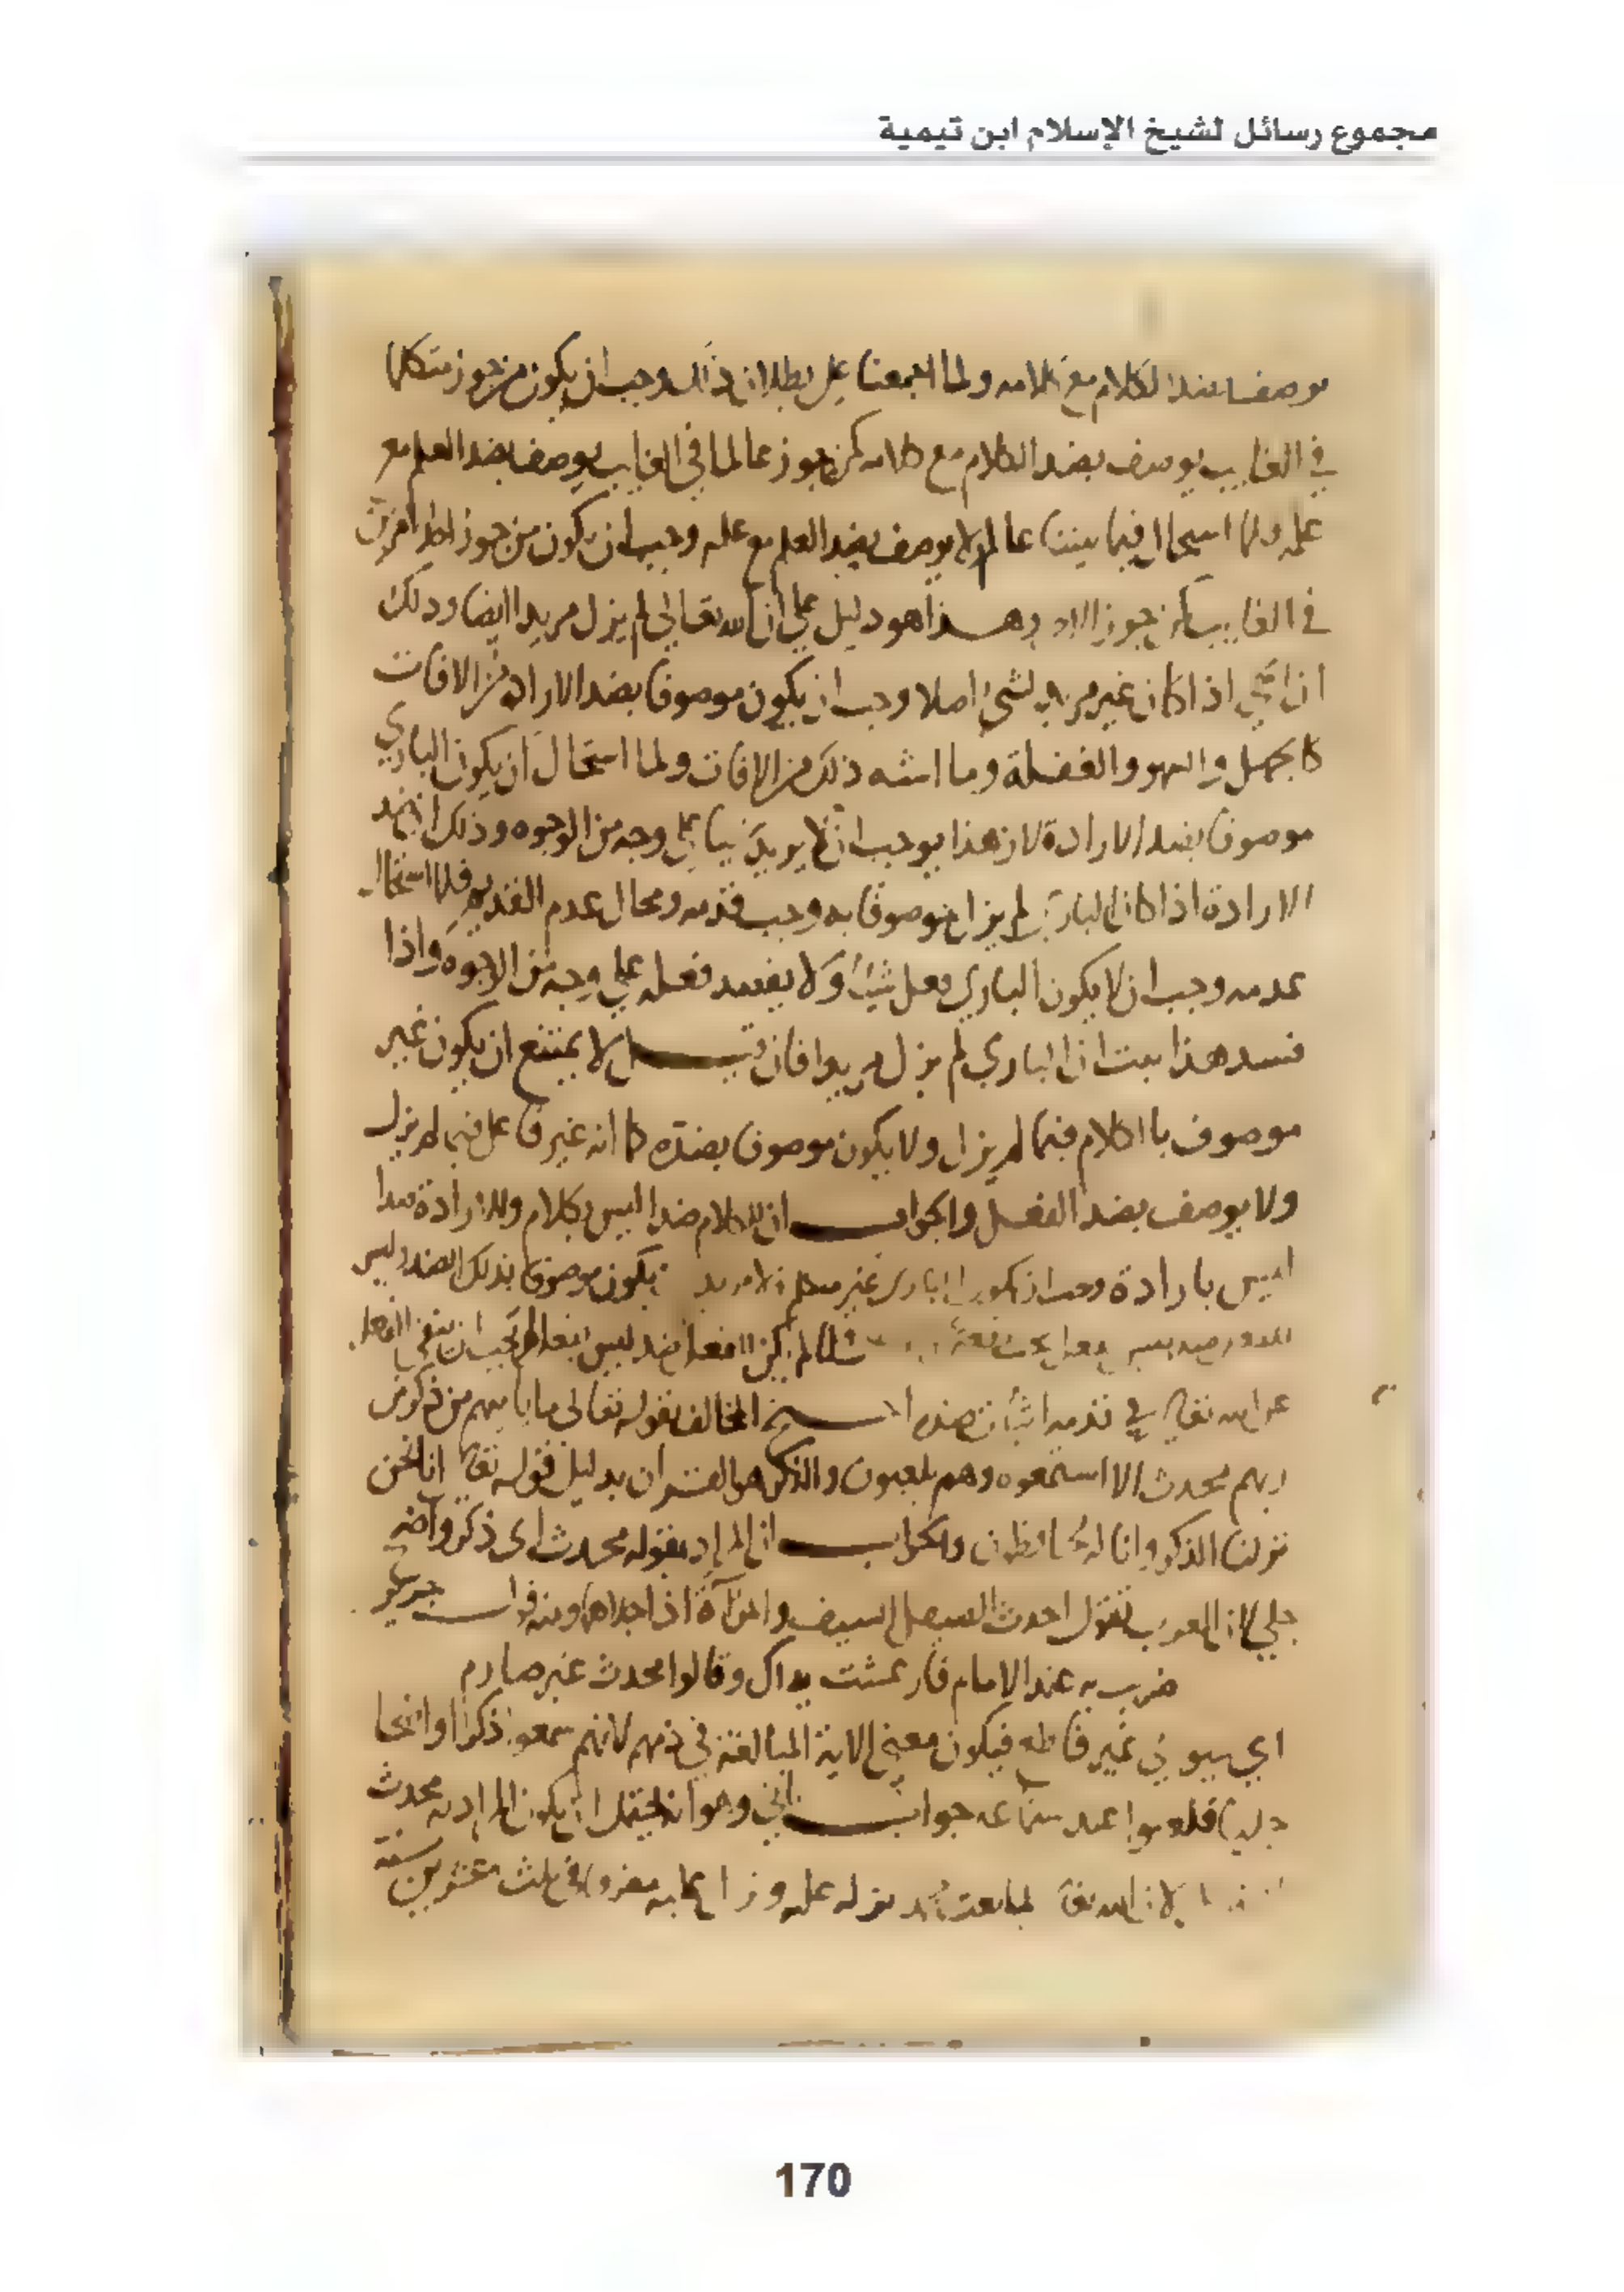 مجموع رسائل لشيخ الإسلام ابن تيمية
يوصف بضد الكلام مع كلامه ولما اجمعنا على بطلان ذلك وجب ان يكون من جوز متكلما
في الغايب يوصف بضد الكلام مع كلامه كمن جوز عالما في الغايب يوصف بضد العلم مع
علمه ولما استحال فيما بيننا عالم لا يوصف بضد العلم مع علمه وجب ان يكون من جوز
في الغايب كمن جوز وهذا هو دليل على ان الله تعالى لم يزل مريدا ايضا وذلك
ان الحي اذا كان غير مريد لشي اصلا وجب ان يكون موصوفا بضد الارادة من الافات
كالجهل والسهو والغفلة وما اشبه ذلك من الافات ولما استحال ان يكون الباري
موصوفا بضد الارادة لان هذا يوجب ان لا يريد شيا على وجه من الوجوه وذلك ان ضد
الارادة اذا كان الباري لم يزل موصوفا به وجب قدمه ومحال عدم القديم فلما استحال
عدمه وجب ان لا يكون الباري فعل شيئا ولا يقصد فعله على وجه من الوجوه واذا
فسد هذا ثبت ان الباري لم يزل مريدا فان قيل لا يمتنع ان يكون غير
موصوف بالكلام فيما لم يزل ولا يكون موصوفا بضده كما انه غير فاعل فيما لم يزل
ولا يوصف بضد الفعل والجواب ان للكلام ضدا ليس بكلام وللارادة ضدا
ليس بارادة وجب ان يكون الباري غير متكلم ولا مريد يكون موصوفا بذلك الضد وليس
فلما لم يكن للفعل ضد ليس بفعل لم يجب ان ينفي الفعل
عن الله تعالى في قدمه اثبات ضده المخالف بقوله تعالى ما ياتيهم من ذكر من
ربهم محدث الا استمعوه وهم يلعبون والذكر هو القران بدليل قوله تعالى انا نحن
نزلنا الذكر وانا له لحافظون والجواب ان المراد بقوله محدث اي ذكر واضح
جلي لان العرب تقول احدث الصيقل السيف والمرآة اذا جلاهما ومنه قول جرير
ضرب به عند الامام فارعشت يداك وقالوا محدث غير صارم
اي غير قاطع فيكون معنى الاية المبالغة في ذمهم لانهم سمعوا ذكرا واضحا
جليا فلعبوا عند سماعه جواب ثاني وهو انه يحتمل ان يكون المراد به محدث
لان الله تعالى لما بعث نزله عليه في ثلث وعشرين سنة
170